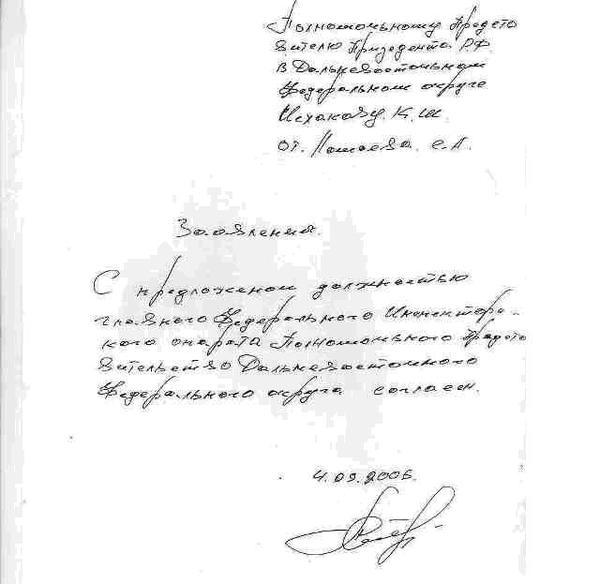 Полномочному Предста
вителю Президента РФ.
в Дальневосточном
Федеральном округе
Исхакову. К.Ш.
от. С.П.
Заявления.
С предложеной должностью
главного Федерального Инспекторс-
кого апарата Полномочного Предста
вительства Дальневосточного
Федерального округа согласен.
4.09.2006.